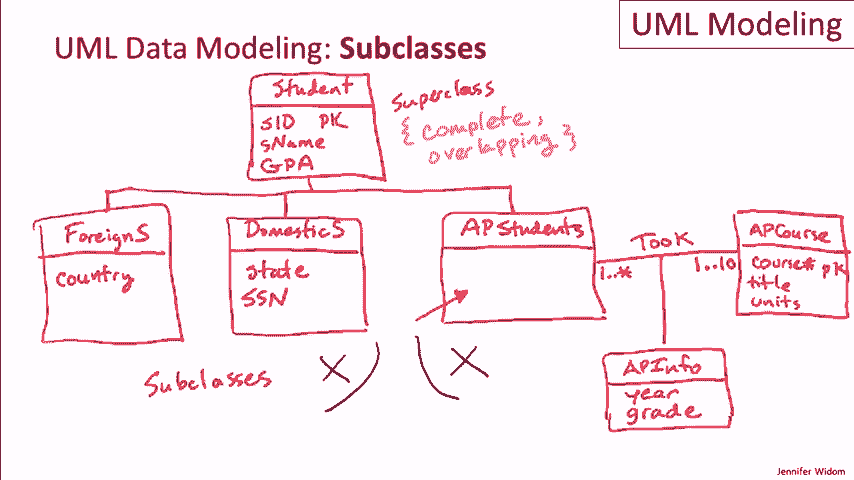 UML Modeling
UML Data Modeling: Subclasses
Student
SID PK
sName
GPA
Superclass
{ complete,
overlapping }
ForeignS
country
DomesticS
state
SSN
APStudents
Took
1..*
1..10
APCourse
course# PK
title
units
APInfo
year
grade
Subclasses
X
X
Jennifer Widom